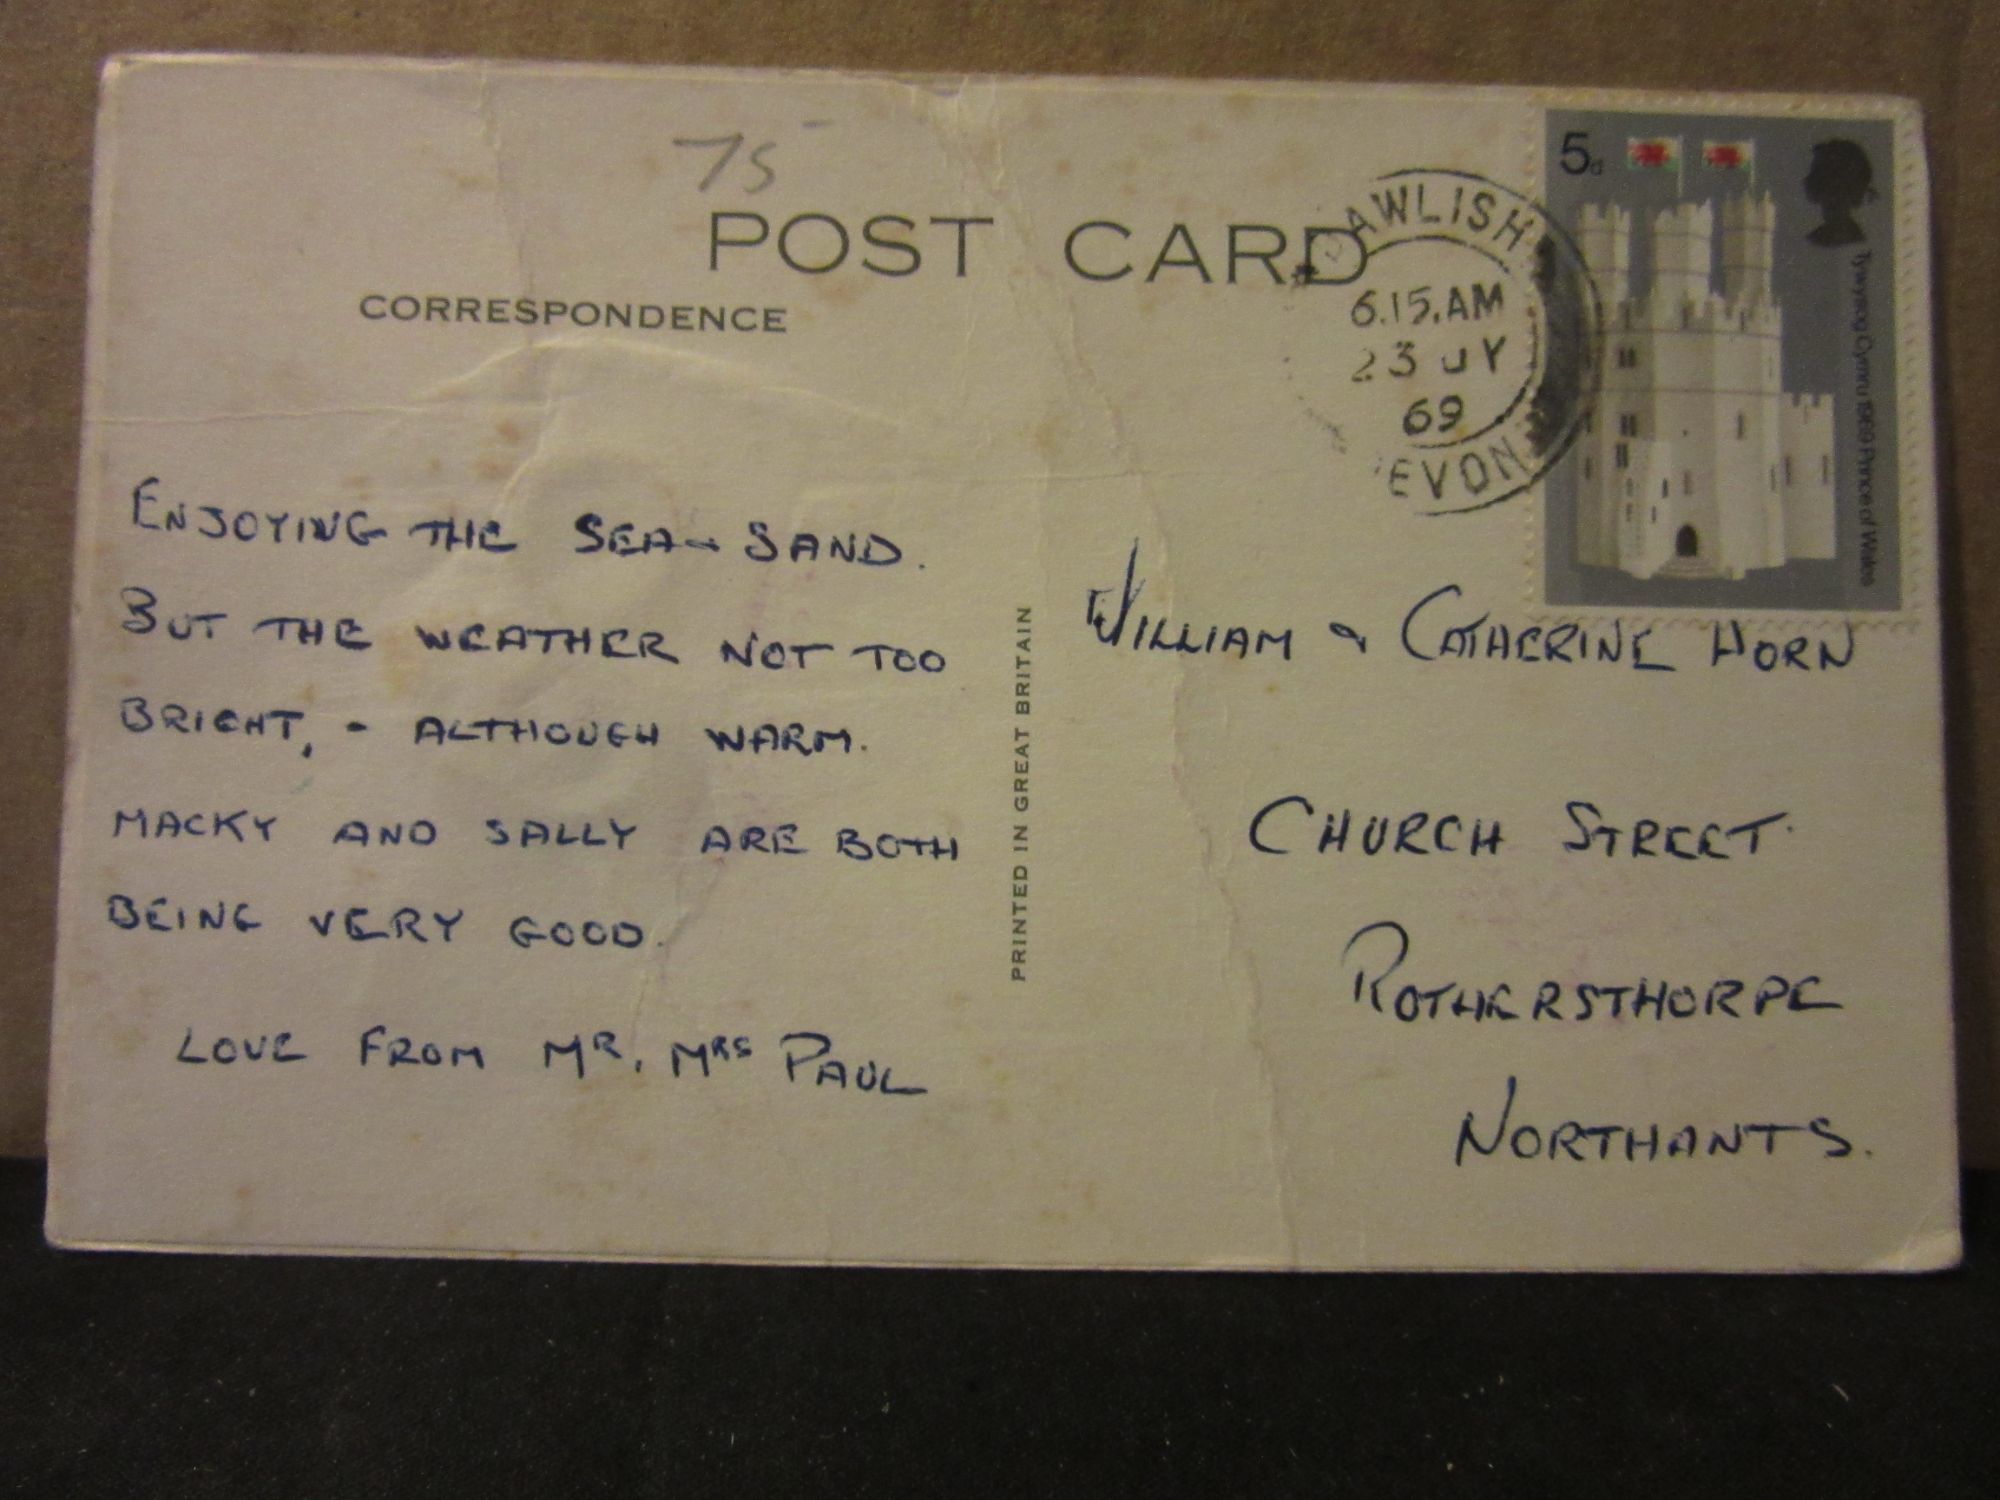 75
POST CARD
CORRESPONDENCE
DAWLISH
6.15.AM
23 JY
69
EVON
5d
Tywysog Cymru 1969 Prince of Wales
ENJOYING THE SEA & SAND.
BUT THE WEATHER NOT TOO
BRIGHT, - ALTHOUGH WARM.
MACKY AND SALLY ARE BOTH
BEING VERY GOOD.
LOVE FROM MR. MRS PAUL
PRINTED IN GREAT BRITAIN
WILLIAM & CATHERINE HORN
CHURCH STREET.
ROTHERSTHORPE
NORTHANTS.